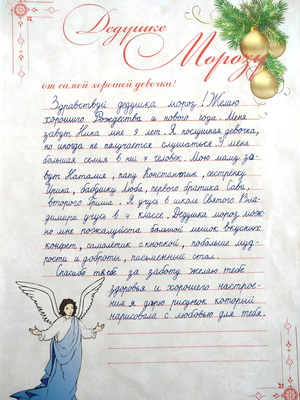 Дедушке
Морозу
от самой хорошей девочки!
Здравствуй дедушка мороз! Желаю
хорошего Рождества и нового года. Меня
зовут Ника мне 9 лет. Я послушная девочка,
но иногда не получается слушаться. У меня
большая семья в ней 7 человек. Мою маму зо-
вут Наталия, папу Константин, сестрёнку
Ирина, бабушку Люба, первого братика Сава,
второго Гриша. Я учусь в школе Святого Вла-
димира учусь в 4 классе. Дедушка мороз мож-
но мне пожалуйста большой мешок вкусных
конфет, самолетик с кнопкой, побольше муд-
рости и доброты, письменный стол.
Спасибо тебе за заботу желаю тебе
здоровья и хорошего настрое-
ния я дарю рисунок который
нарисовала с любовью для тебя.